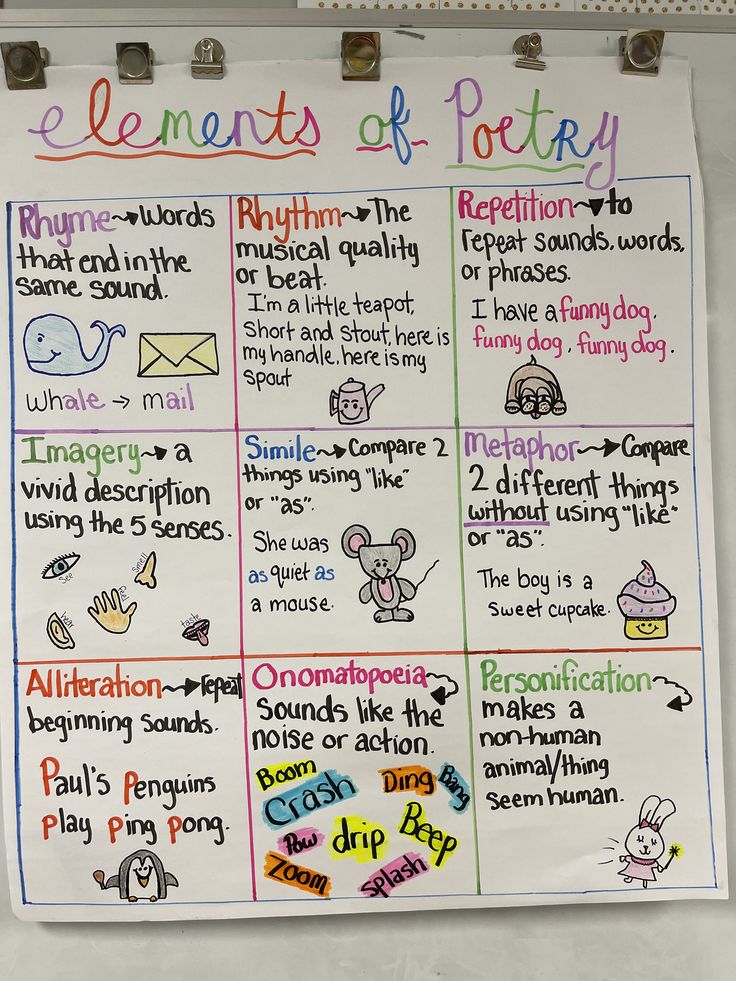 elements of Poetry
Rhyme → Words
that end in the
same sound.
whale → mail
Rhythm → The
musical quality
or beat.
I'm a little teapot,
Short and stout, here is
my handle, here is my
spout
Repetition → to
repeat sounds, words,
or phrases.
I have a funny dog,
funny dog, funny dog.
Imagery → a
vivid description
using the 5 senses.
see
smell
feel
hear
taste
Simile → Compare 2
things using "like"
or "as".
She was
as quiet as
a mouse.
Metaphor → Compare
2 different things
without using "like"
or "as".
The boy is a
sweet cupcake.
Alliteration → repeat
beginning sounds.
Paul's Penguins
Play Ping Pong.
Onomatopoeia
Sounds like the
noise or action.
Boom
Crash
Ding
Bang
Pow
drip
Beep
Zoom
splash
Personification
makes a
non-human
animal/thing
seem human.